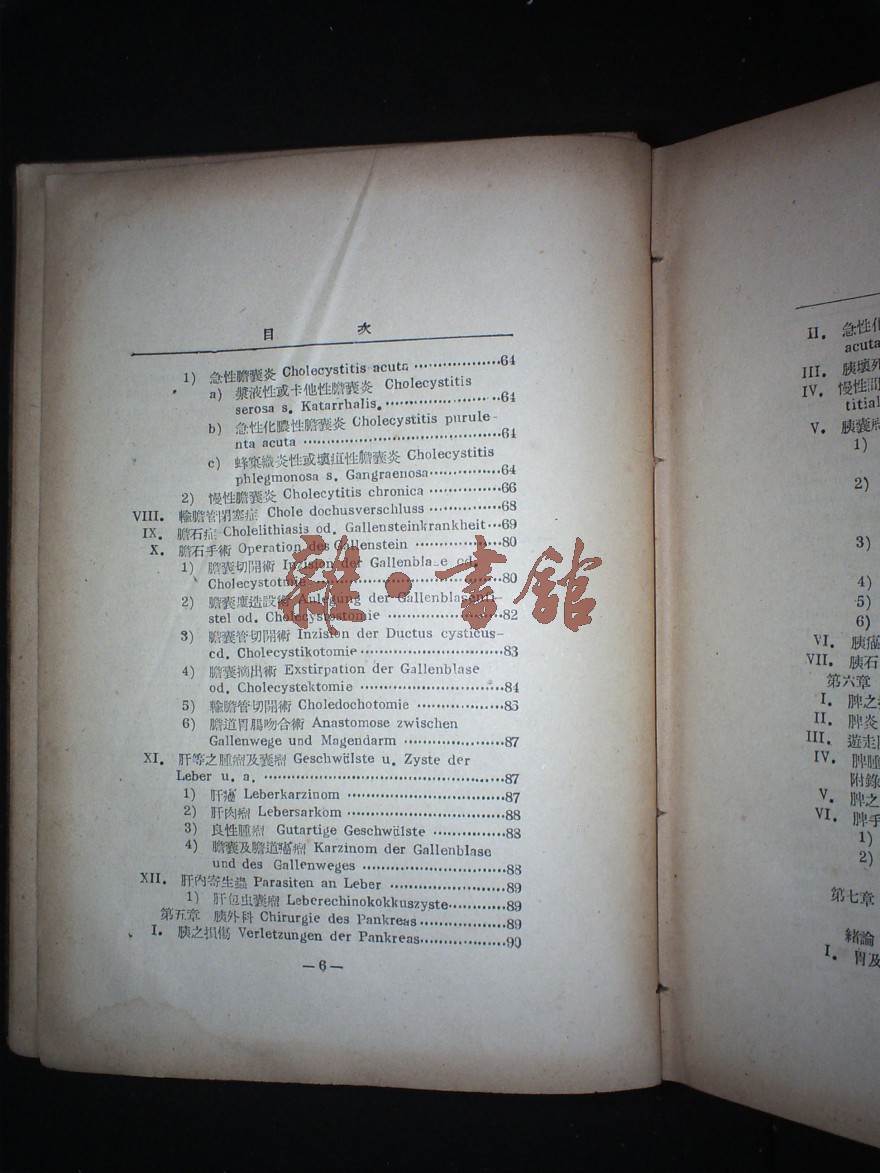 目 次
1) 急性膽囊炎 Cholecystitis acuta ··················64
a) 漿液性或卡他性膽囊炎 Cholecystitis
serosa s. Katarrhalis. ··················64
b) 急性化膿性膽囊炎 Cholecystitis purule-
nta acuta ··················64
c) 蜂窠織炎性或壞疽性膽囊炎 Cholecystitis
phlegmonosa s. Gangraenosa··················64
2) 慢性膽囊炎 Cholecytitis chronica ··················66
VIII. 輸膽管閉塞症 Chole dochusverschluss ··················68
IX. 膽石症 Cholelithiasis od. Gallensteinkrankheit···69
X. 膽石手術 Operation des Gallenstein ··················80
1) 膽囊切開術 Inzision der Gallenblase cd.
Cholecystotmie ··················80
2) 膽囊廔造設術 Anlegung der Gallenblasenfi-
stel od. Cholecystostomie ··················82
3) 膽囊管切開術 Inzision der Ductus cysticus-
cd. Cholecystikotomie ··················83
4) 膽囊摘出術 Exstirpation der Gallenblase
od. Cholecystektomie ··················84
5) 輸膽管切開術 Choledochotomie ··················85
6) 膽道胃腸吻合術 Anastomose zwischen
Gallenwege und Magendarm ··················87
XI. 肝等之腫瘤及囊瘤 Geschwälste u. Zyste der
Leber u. a. ··················87
1) 肝癌 Leberkarzinom ··················87
2) 肝肉瘤 Lebersarkom ··················88
3) 良性腫瘤 Gutartige Geschwälste ··················88
4) 膽囊及膽道癌瘤 Karzinom der Gallenblase
und des Gallenweges ··················88
XII. 肝內寄生蟲 Parasiten an Leber ··················89
1) 肝包虫囊瘤 Leberechinokokkuszyste··················89
第五章 胰外科 Chirurgie des Pankreas··················89
I. 胰之損傷 Verletzungen der Pankreas··················90
—6—
雜·書館
II. 急性
acuta
III. 胰壞死
IV. 慢性間
titial
V. 胰囊
1)
2)
3)
4)
5)
6)
VI. 胰癌
VII. 胰石
第六章
I. 脾之
II. 脾炎
III. 遊走
IV. 脾腫
附錄
V. 脾之
VI. 脾手
1)
2)
第七章
緒論
I. 胃及